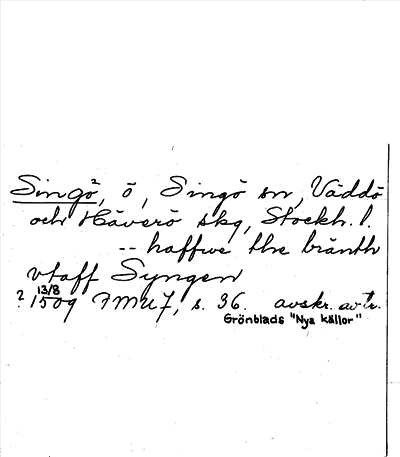 Singö², ö, Singö sn, Väddö
och Häverö skg, Stockh. l.
-- haffwe the bränth
vtaff Syngen
? 13/8 1509 FMU 7, s. 36. avskr. av tr.
Grönblads "Nya källor"